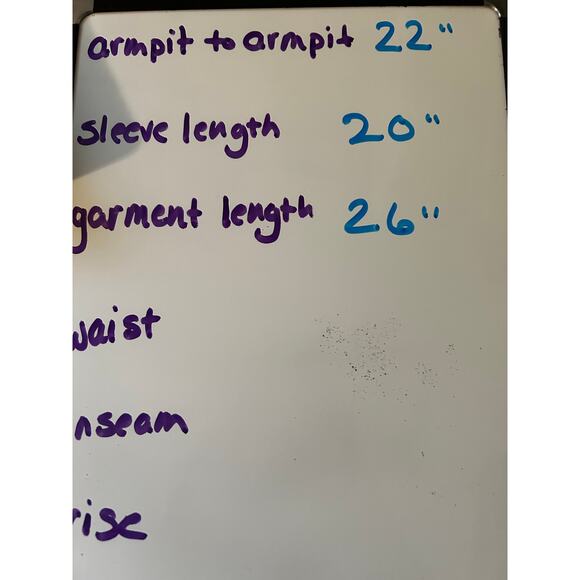 armpit to armpit 22"
sleeve length 20"
garment length 26"
waist
nseam
rise